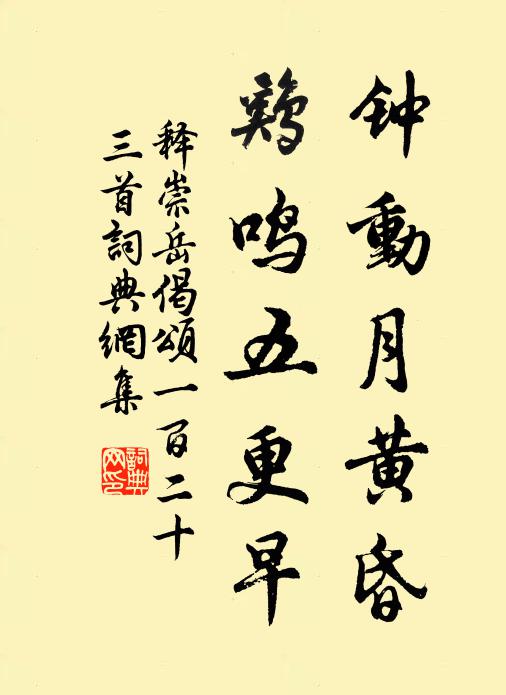 钟動月黄昏
鷄鸣五更早
释崇岳偈頌一百二十
三首詞典網集
詞典
网印